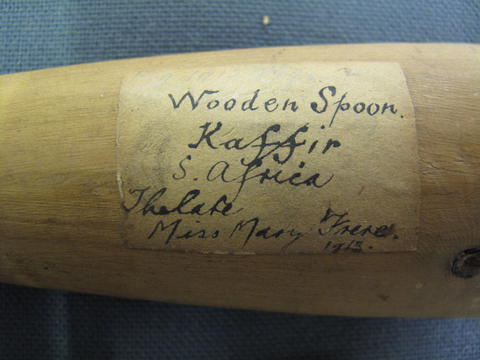 Wooden Spoon.
Kaffir
S. Africa
The late
Miss Mary Frere.
1913.